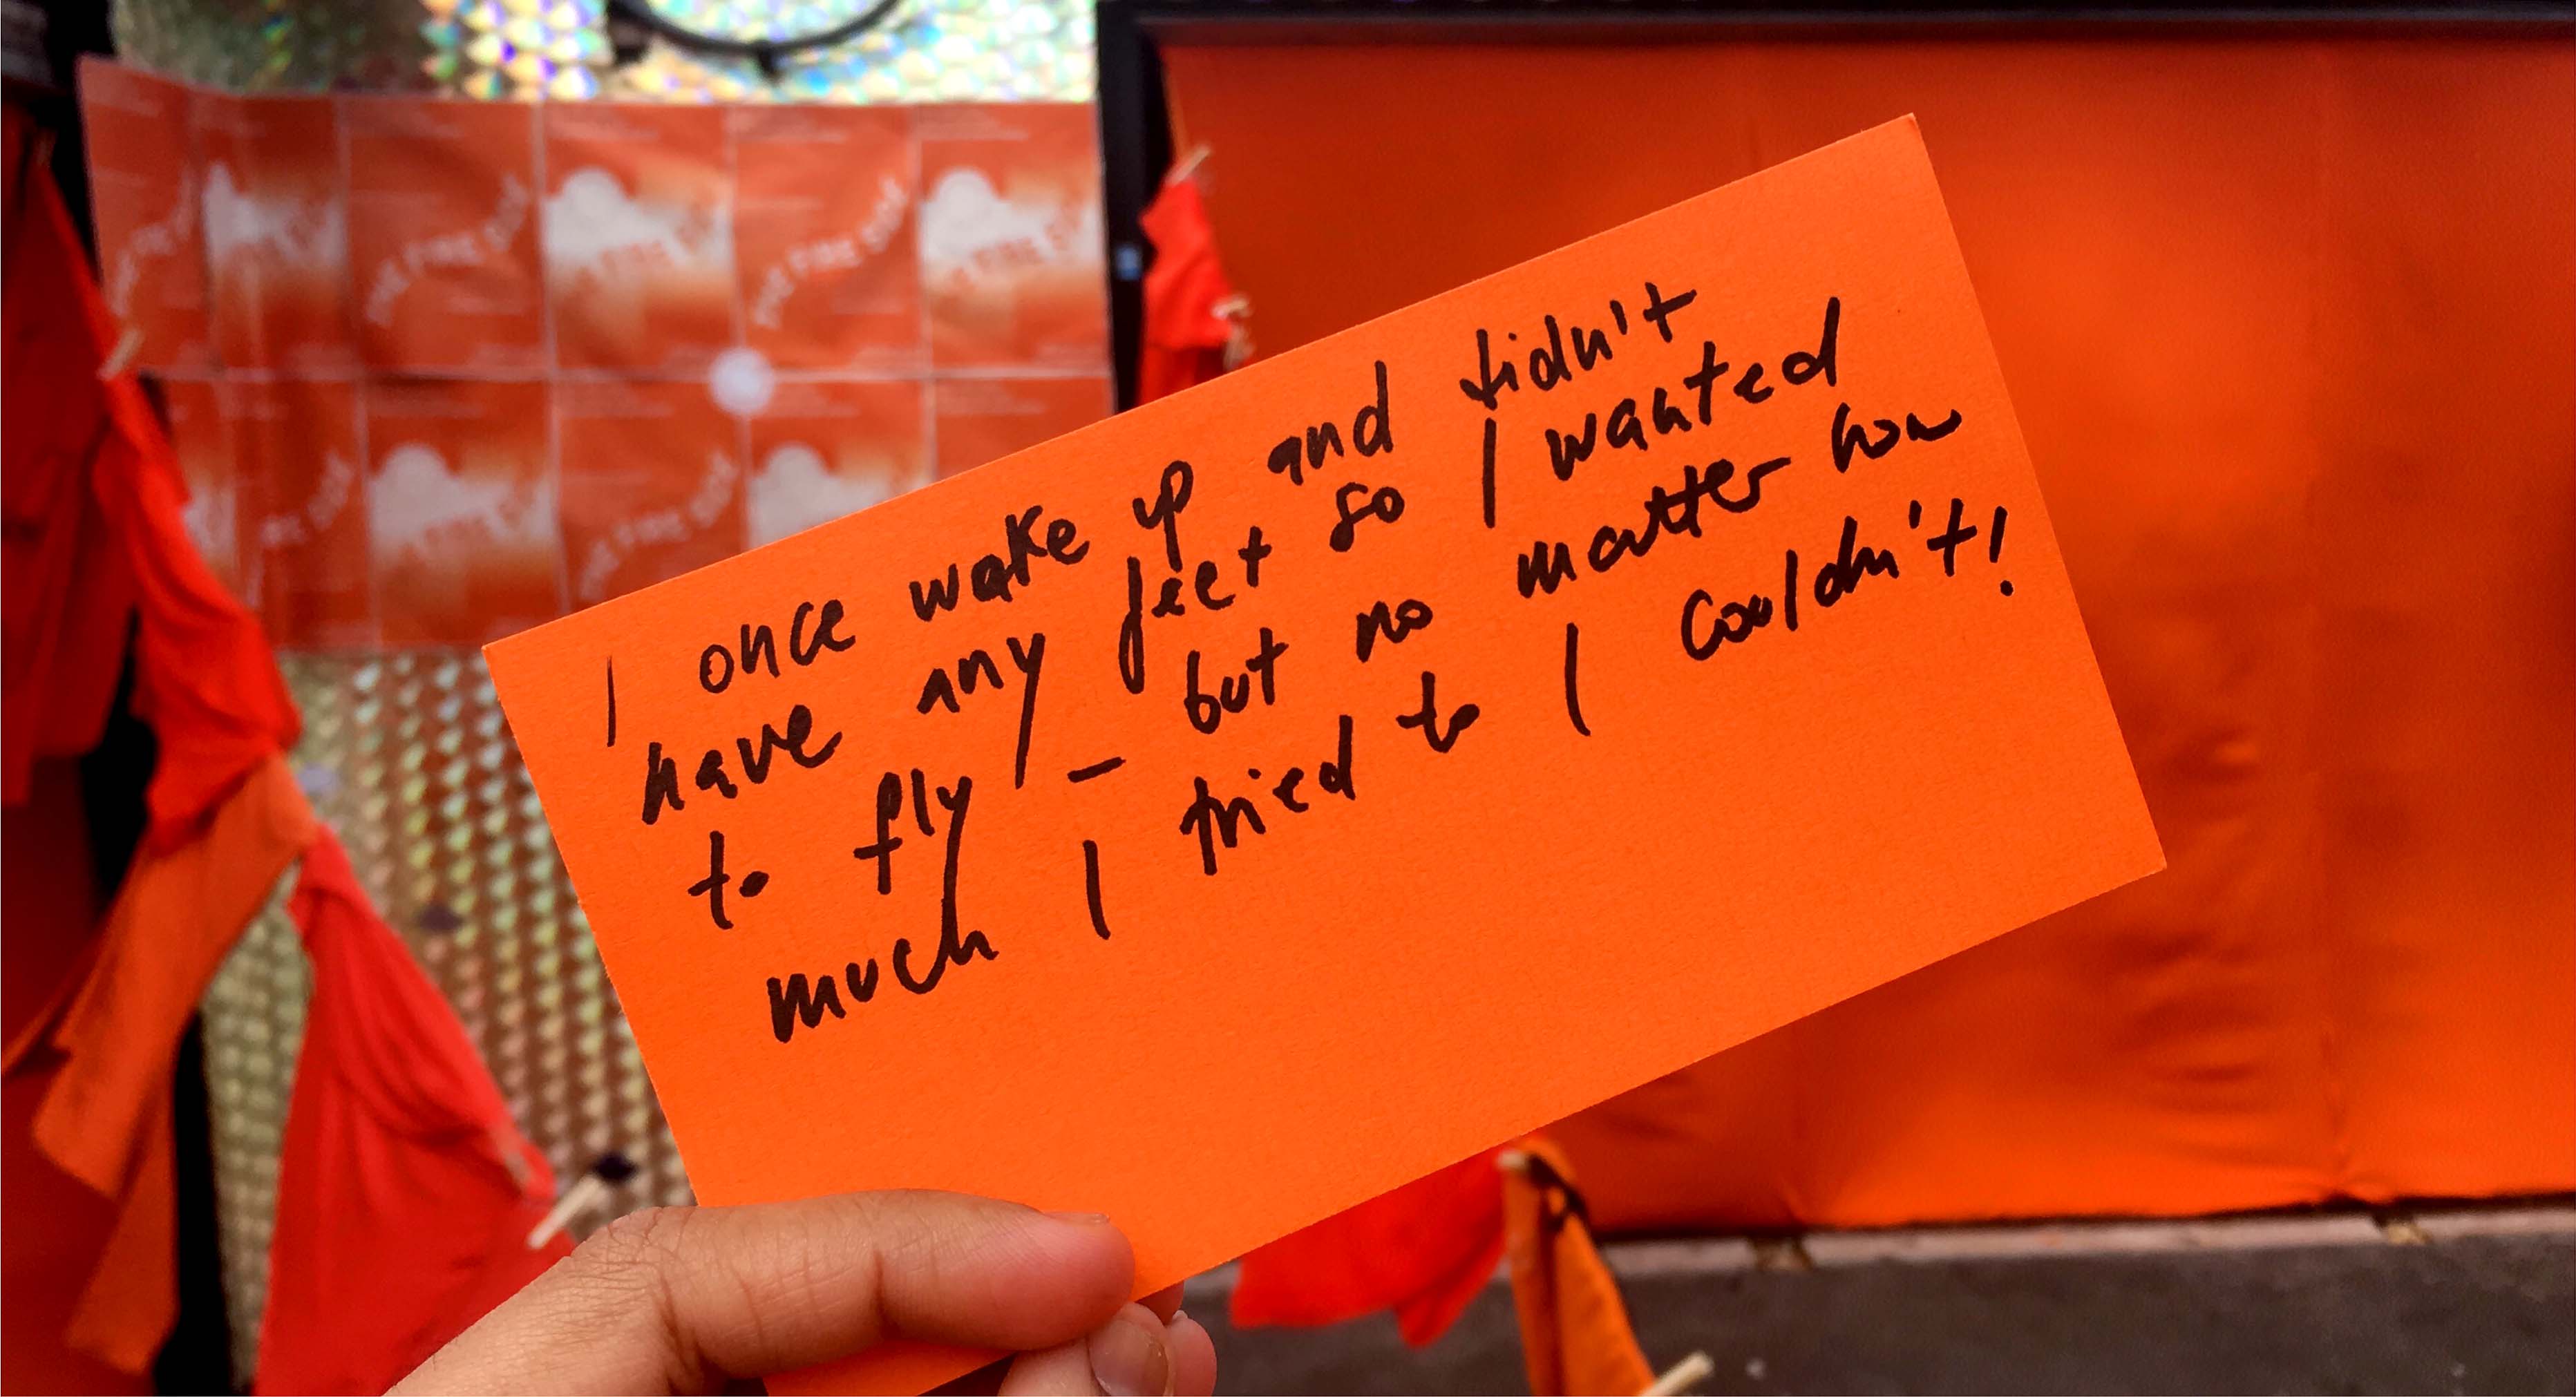 I once wake up and didn't
have any feet so I wanted
to fly – but no matter how
much I tried to I couldn't!
THE FIRE